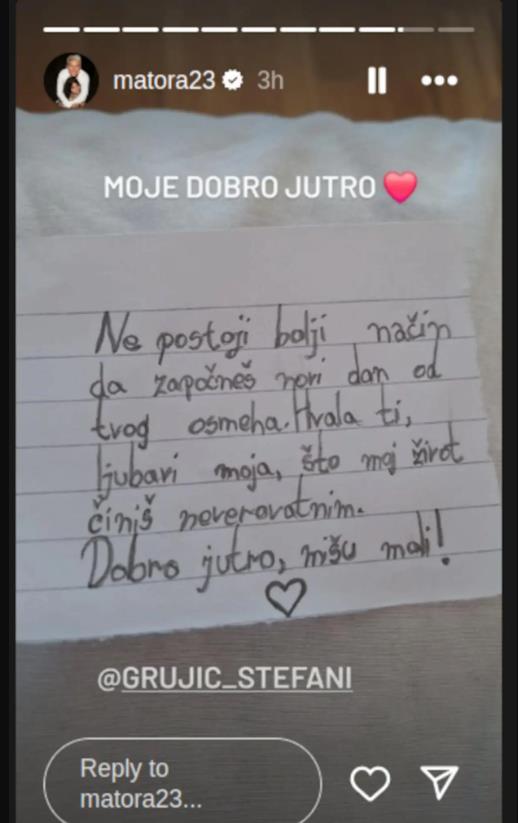 matora23 3h
MOJE DOBRO JUTRO
Ne postoji bolji način
da započneš novi dan od
tvog osmeha. Hvala ti,
ljubavi moja, što moj život
činiš neverovatnim.
Dobro jutro, mišu mali!
@GRUJIC_STEFANI
Reply to
matora23...